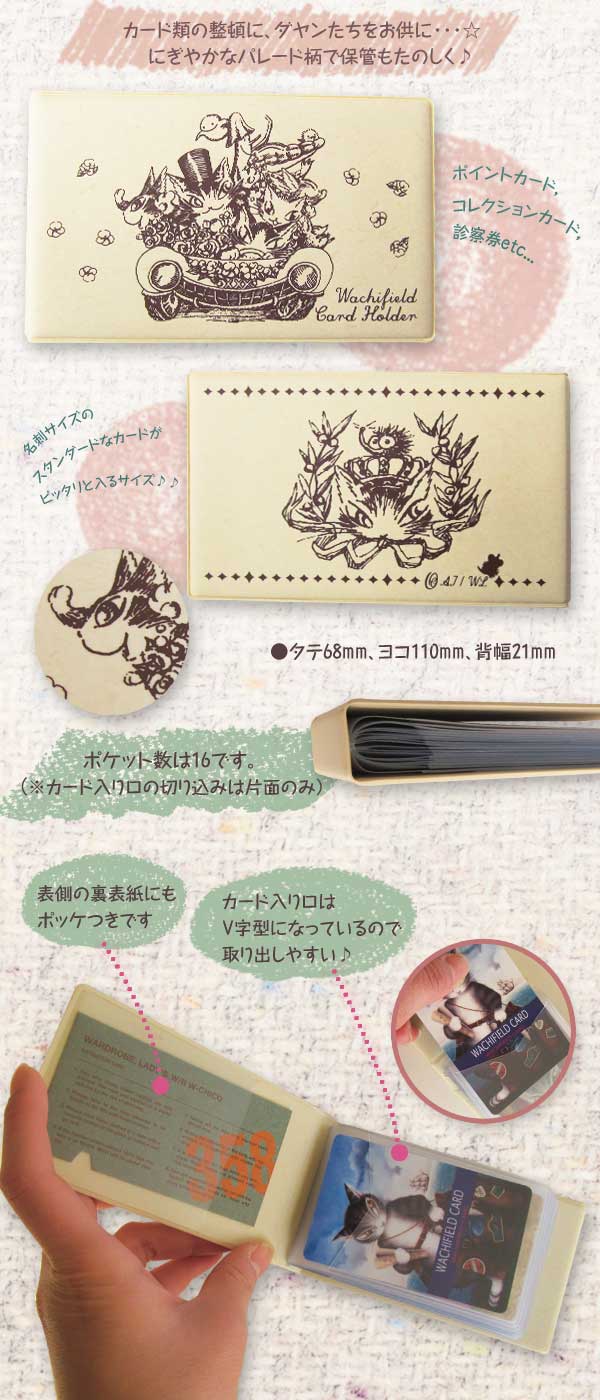 カード類の整頓に、ダヤンたちをお供に・・・☆
にぎやかなパレード柄で保管もたのしく♪
ポイントカード,
コレクションカード,
診察券etc...
Wachifield
Card Holder
名刺サイズの
スタンダードなカードが
ピッタリと入るサイズ♪♪
© A.I / W.L
●タテ68mm、ヨコ110mm、背幅21mm
ポケット数は16です。
(※カード入り口の切り込みは片面のみ)
表側の裏表紙にも
ポッケつきです
カード入り口は
V字型になっているので
取り出しやすい♪
WACHIFIELD CARD
WARDROBE: LADIES W/B W-CHICO
358
WACHIFIELD CARD